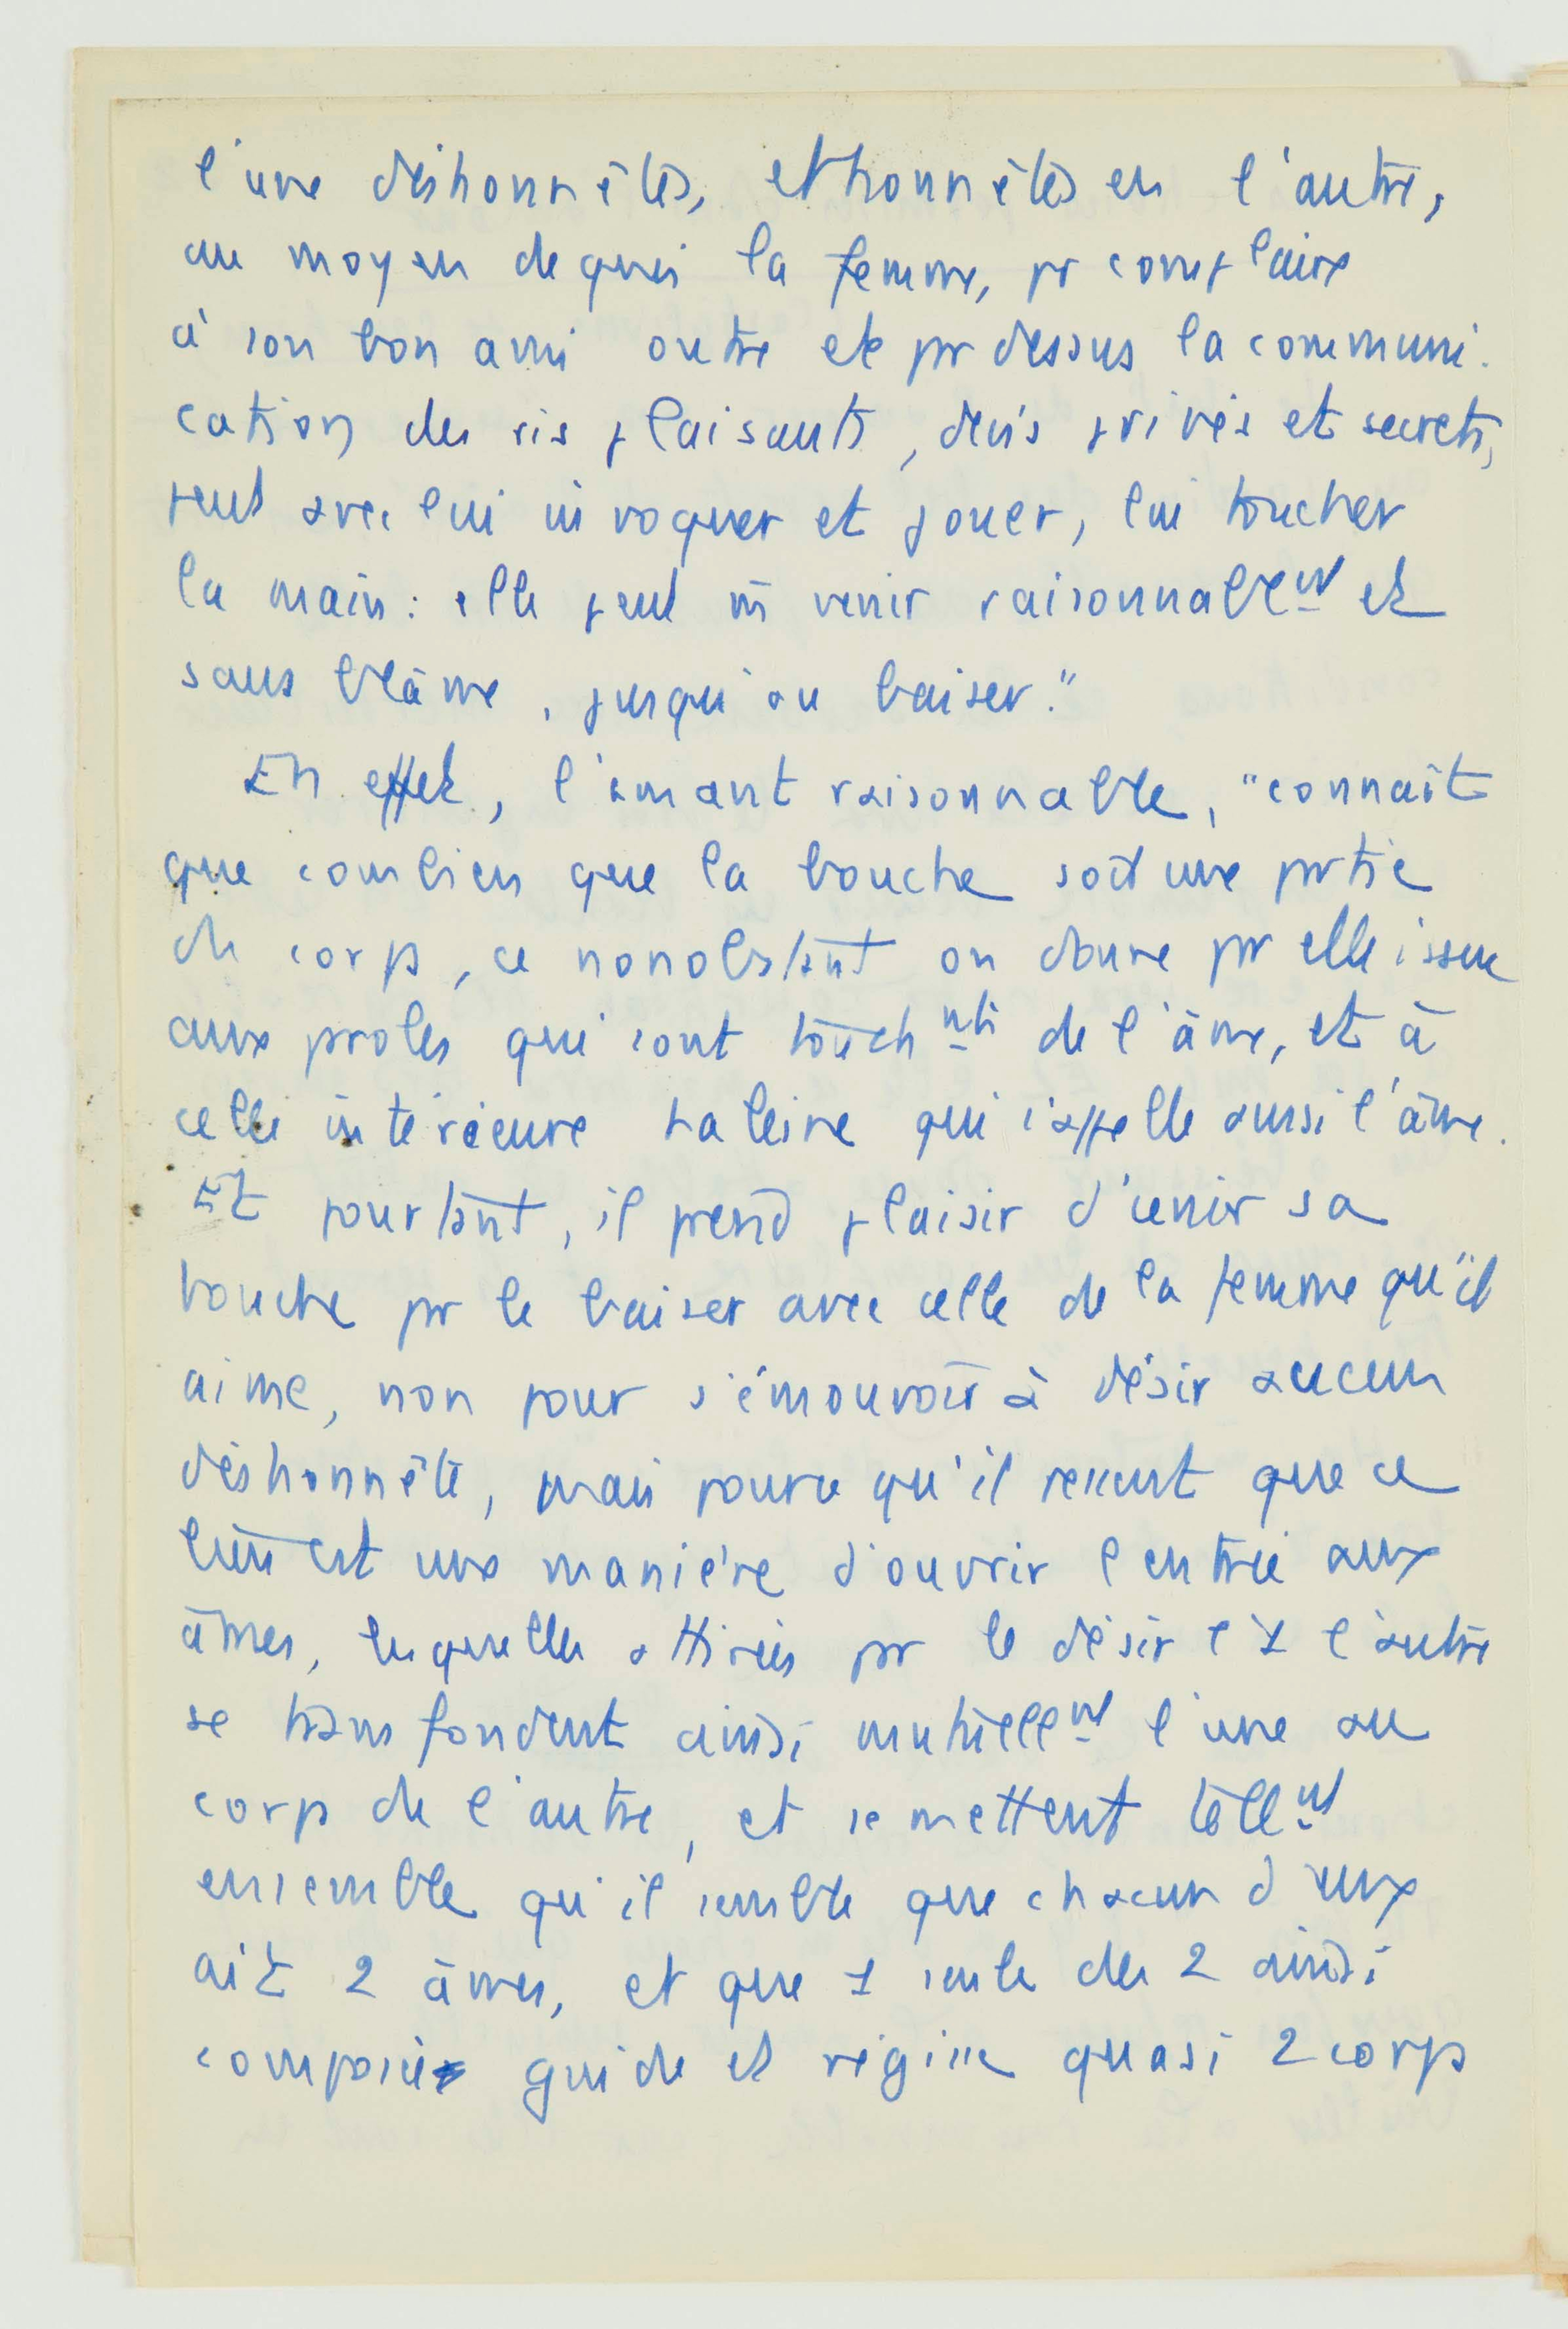 l'une déshonnêtes, et honnêtes en l'autre,
au moyen de quoi la femme, pr complaire
à son bon ami outre et pr dessus la communi-
cation des ris plaisants, devis privés et secrets,
peut avec lui invoquer et jouer, lui toucher
la main : elle peut m̄ venir raisonnablent et
sans blâme, jusqu'au baiser."
En effet, l'amant raisonnable, "connaît
que combien que la bouche soit une prtie
du corps, ce nonobstant on donne pr elle issue
aux proles qui sont touchnts de l'âme, et à
celle intérieure haleine qui s'appelle aussi l'âme.
Et pourtant, il prend plaisir d'unir sa
bouche pr le baiser avec celle de la femme qu'il
aime, non pour s'émouvoir à désir aucun
déshonnête, mais pource qu'il ressent que ce
lien est une manière d'ouvrir l'entrée aux
âmes, lesquelles attirées pr le désir l'1 l'autre
se transfondent ainsi mutuellnt l'une au
corps de l'autre, et se mettent tellnt
ensemble qu'il semble que chacun d'eux
ait 2 âmes, et que 1 seule des 2 ainsi
composée guide et régisse quasi 2 corps